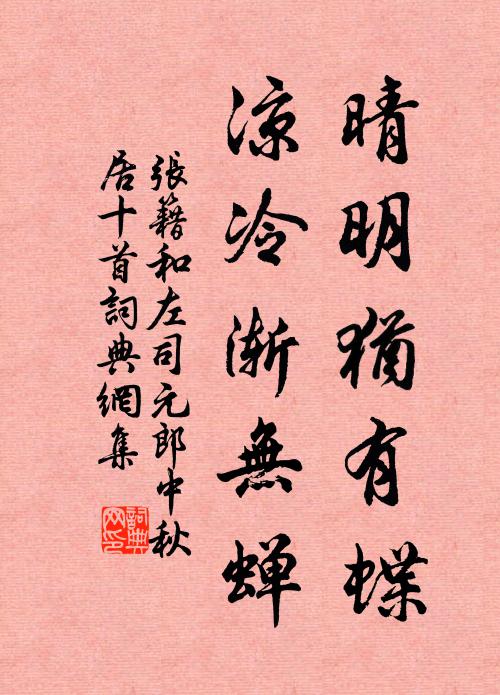 晴明猶有蝶
涼冷漸無蟬
張籍和左司元郎中秋
居十首詞典網集
詞典
网印